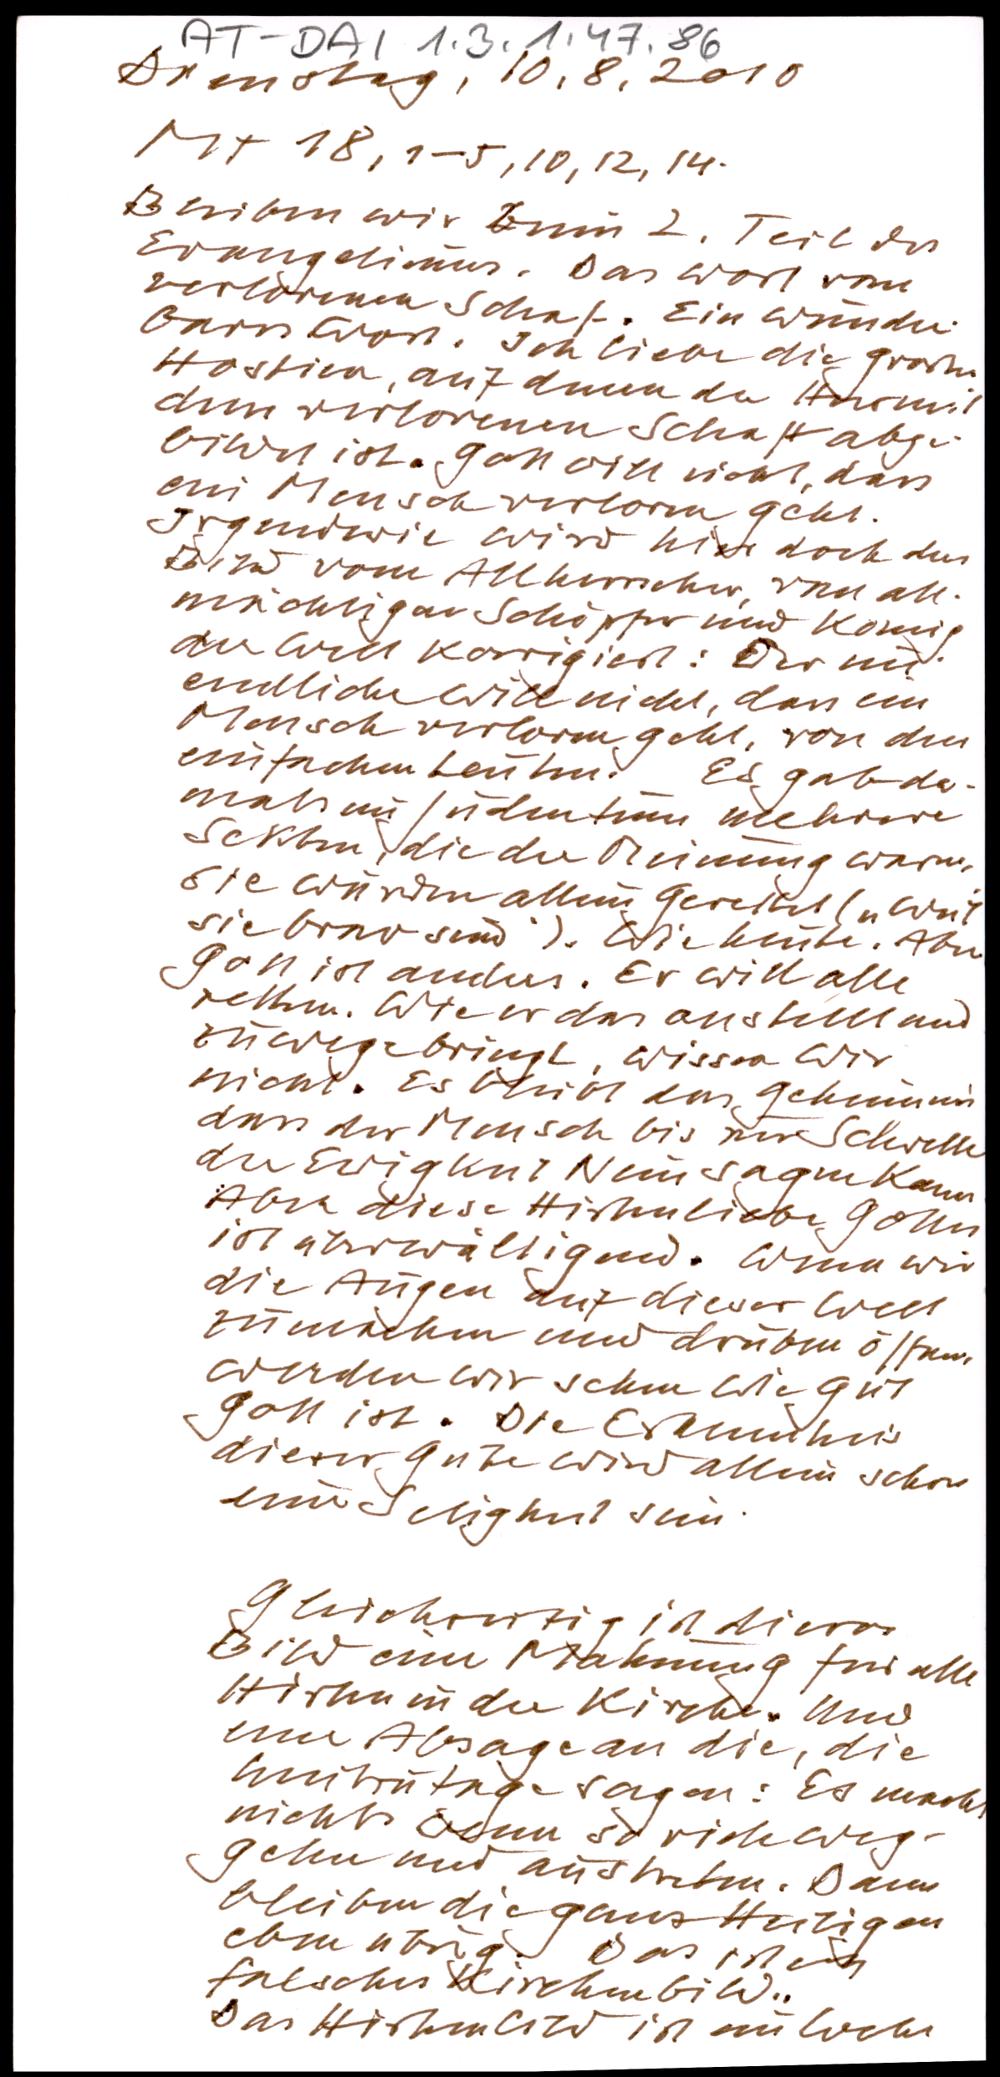 AT-DAI 1.3.1.47.86
Dienstag, 10.8.2010
Mt 18, 1-5, 10, 12, 14.
Bleiben wir beim 2. Teil des
Evangeliums. Das Wort vom
verlorenen Schaf. Ein wunder-
bares Wort. Ich liebe die grossen
Hostien, auf denen der Hirt mit
dem verlorenen Schaf abge-
bildet ist. Gott will nicht, dass
ein Mensch verloren geht.
Irgendwie wird hier doch das
Bild vom Allherrscher, vom all-
mächtigen Schöpfer und König
der Welt korrigiert: Der un-
endliche will nicht, dass ein
Mensch verloren geht, von den
einfachen Leuten. Es gab da-
mals im Judentum mehrere
Sekten, die der Meinung waren,
sie würden allein gerettet („weil
sie brav sind"). Wie heute. Aber
Gott ist anders. Er will alle
retten. Wie er das anstellt und
zuwegebringt, wissen wir
nicht. Es bleibt das Geheimnis
dass der Mensch bis zur Schwelle
der Ewigkeit Nein sagen kann
Aber diese Hirtenliebe Gottes
ist überwältigend. Wenn wir
die Augen auf dieser Welt
zumachen und drüben öffnen,
werden wir sehen wie gut
Gott ist. Die Erkenntnis
dieser Güte wird allein schon
eine Seligkeit sein.
Gleichzeitig ist dieses
Bild eine Mahnung für alle
Hirten in der Kirche. Und
eine Absage an die, die
heutzutage sagen: Es macht
nichts wenn so viele weg-
gehen und austreten. Dann
bleiben die ganz Heiligen
eben übrig. Das ist ein
falsches Kirchenbild..
Das Hirtenbild ist